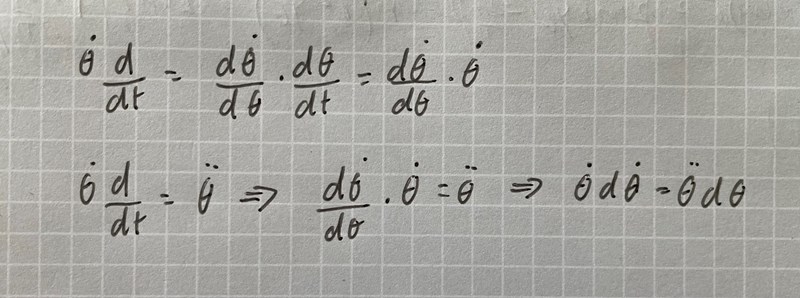 θ̇ d/dt = dθ̇/dθ · dθ/dt = dθ̇/dθ · θ̇
θ̇ d/dt = θ̈ ⇒ dθ̇/dθ · θ̇ = θ̈ ⇒ θ̇ dθ̇ = θ̈ dθ